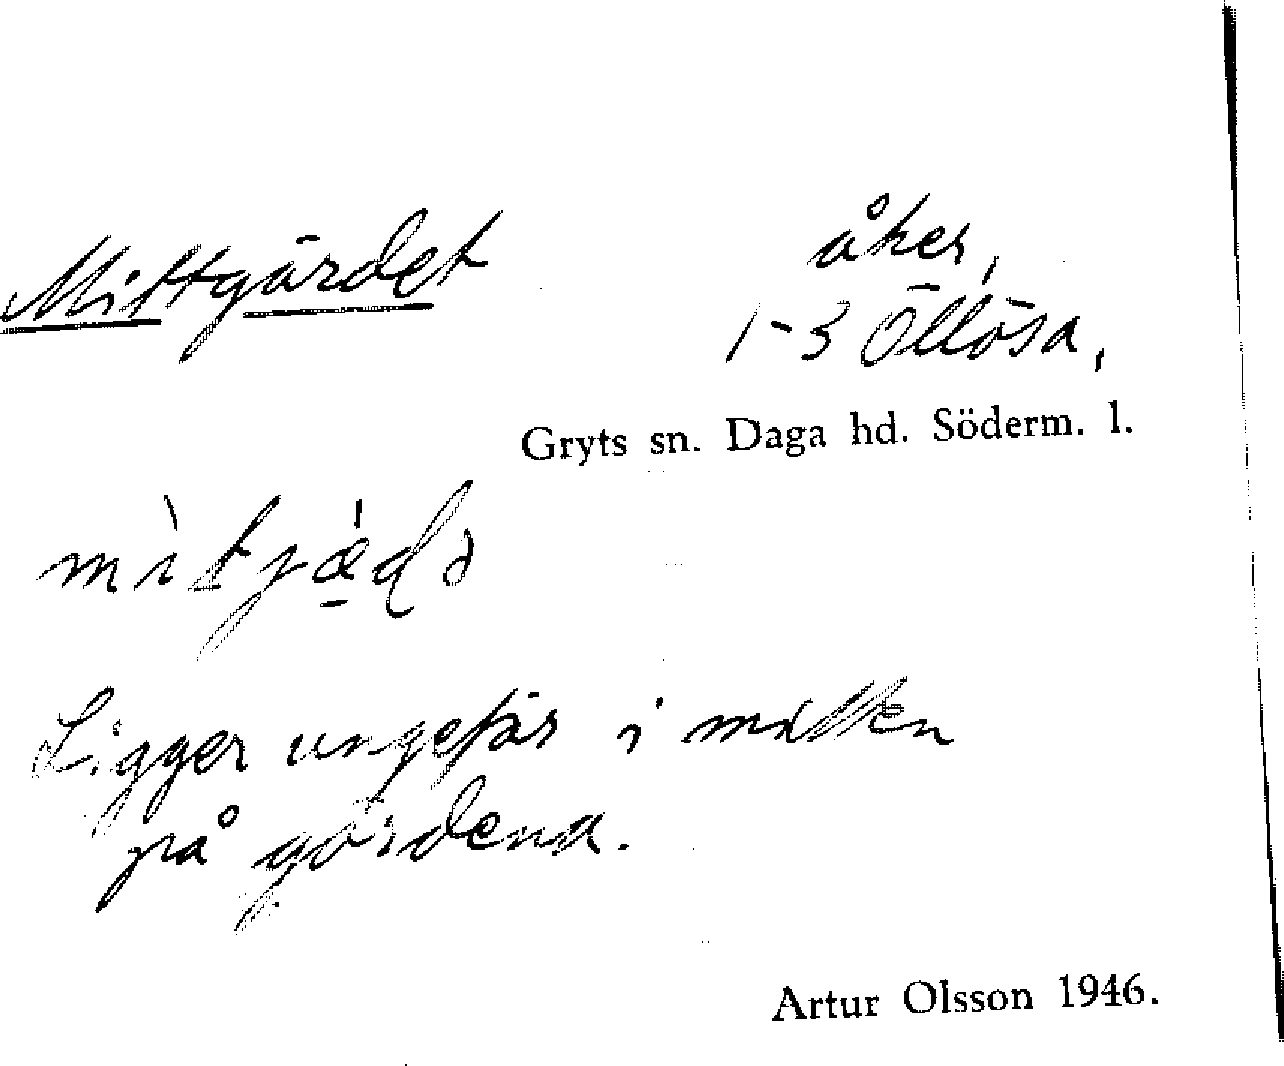 Mittgärdet
åker,
1-3 Öllösa,
Gryts sn. Daga hd. Söderm. l.
mìtjæ̀də
Ligger ungefär i mitten
på gärdena.
Artur Olsson 1946.